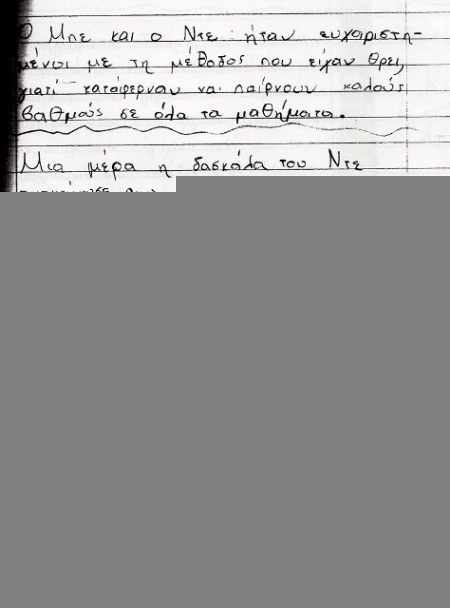 Ο Μπε και ο Ντε ήταν ευχαριστη-
μένοι με τη μέθοδος που είχαν βρει,
γιατί κατάφερναν να παίρνουν καλούς
βαθμούς σε όλα τα μαθήματα.
Μια μέρα η δασκάλα του Ντε